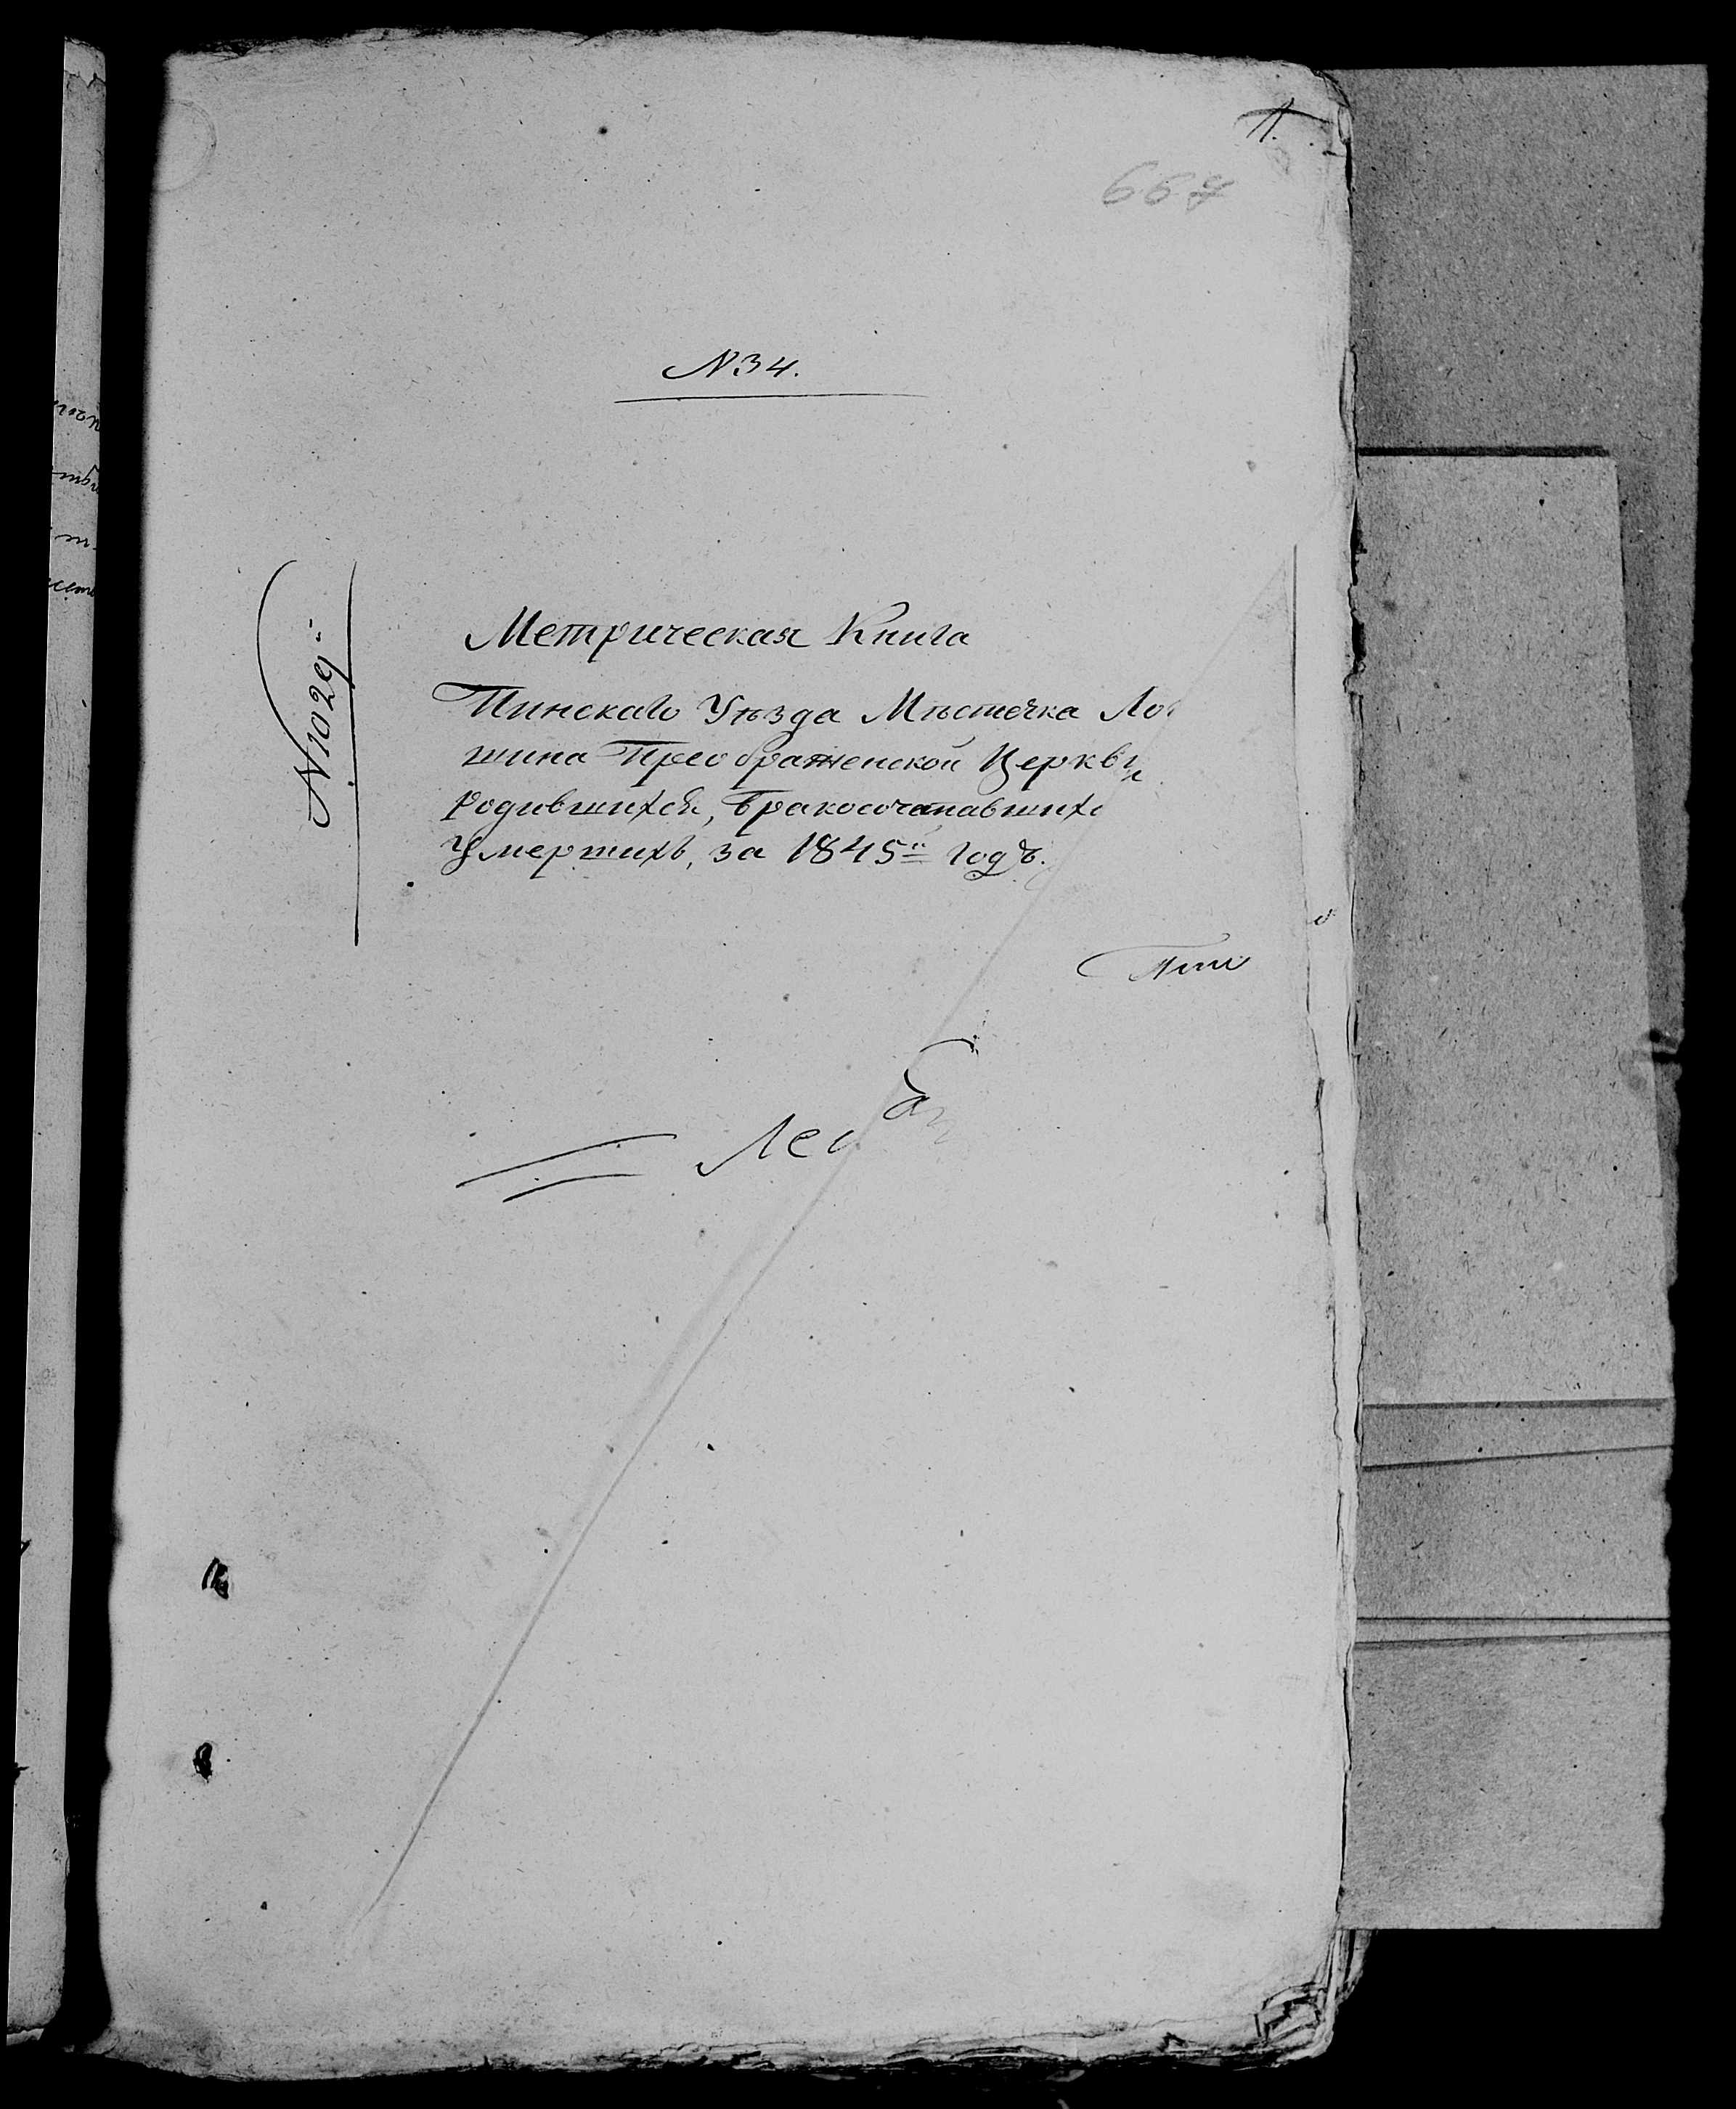 667
N 34.
N 1029
Метрическая Книга
Пинскаго Уѣзда Мѣстечка Ло
шина Преображенской Церкви
Родившихся, Бракосочетавших
Умершихъ, за 1845й годъ.